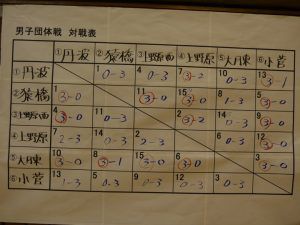 男子団体戦 対戦表
①丹波 ②猿橋 ③上野原西 ④上野原 ⑤大月東 ⑥小菅
①丹波 1 0-3 4 0-3 7 3-2 10 0-3 13 3-1
②猿橋 1 3-0 11 3-0 15 3-0 8 1-3 5 3-0
③上野原西 4 3-0 11 0-3 2 3-2 0-3 9 3-0
④上野原 7 2-3 0-3 2-3 6 0-3 12 3-0
⑤大月東 10 3-0 8 3-1 15 3-0 6 3-0 3 3-0
⑥小菅 13 1-3 5 0-3 9 0-3 12 0-3 3 0-3